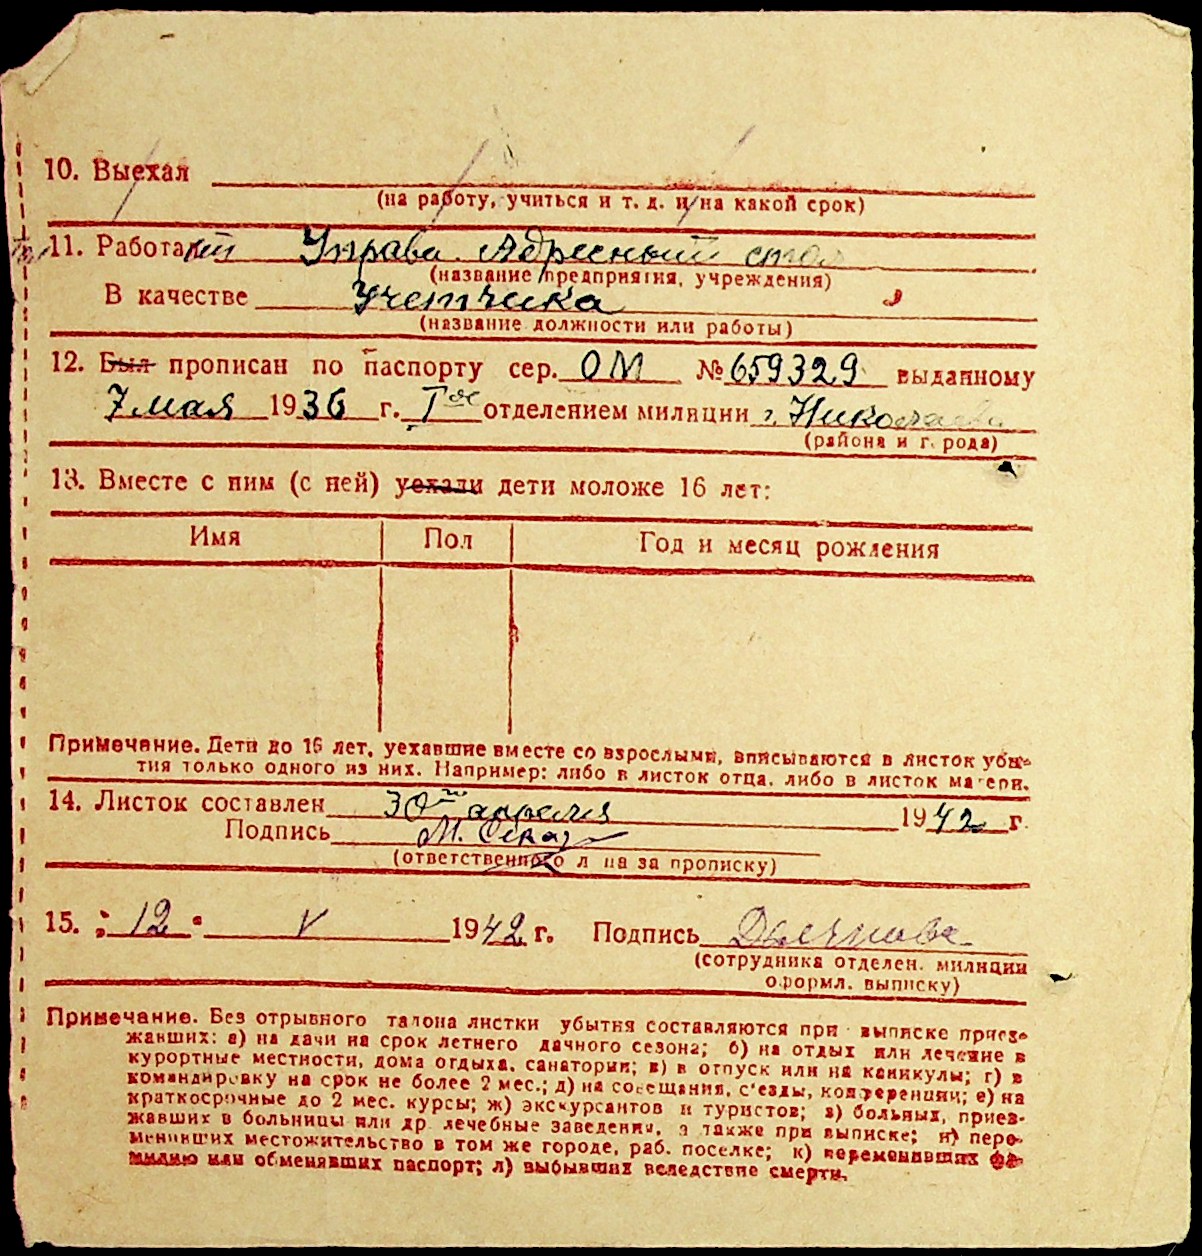 10. Выехал
(на работу, учиться и т. д. и на какой срок)
11. Работает Управа Адресный стол
(название предприятия, учреждения)
В качестве Учетчика
(название должности или работы)
12. Был прописан по паспорту сер. ОМ № 659329 выданному
7 мая 1936 г. I ое отделением милиции г. Николаева
(района и города)
13. Вместе с ним (с ней) уехали дети моложе 16 лет:
Имя Пол Год и месяц рождения
Примечание. Дети до 16 лет, уехавшие вместе со взрослыми, вписываются в листок убы-
тия только одного из них. Например: либо в листок отца, либо в листок матери.
14. Листок составлен 30го апреля 1942 г.
Подпись М.
(ответственного лица за прописку)
15. „12“ V 1942 г. Подпись
(сотрудника отделен. милиции
оформл. выписку)
Примечание. Без отрывного талона листки убытия составляются при выписке приез-
жавших: а) на дачи на срок летнего дачного сезона; б) на отдых или лечение в
курортные местности, дома отдыха, санатории; в) в отпуск или на каникулы; г) в
командировку на срок не более 2 мес.; д) на совещания, с'езды, конференции; е) на
краткосрочные до 2 мес. курсы; ж) экскурсантов и туристов; з) больных, приез-
жавших в больницы или др. лечебные заведения, а также при выписке; и) пере-
менивших местожительство в том же городе, раб. поселке; к) переменивших фа-
милию или обменявших паспорт; л) выбывших вследствие смерти.